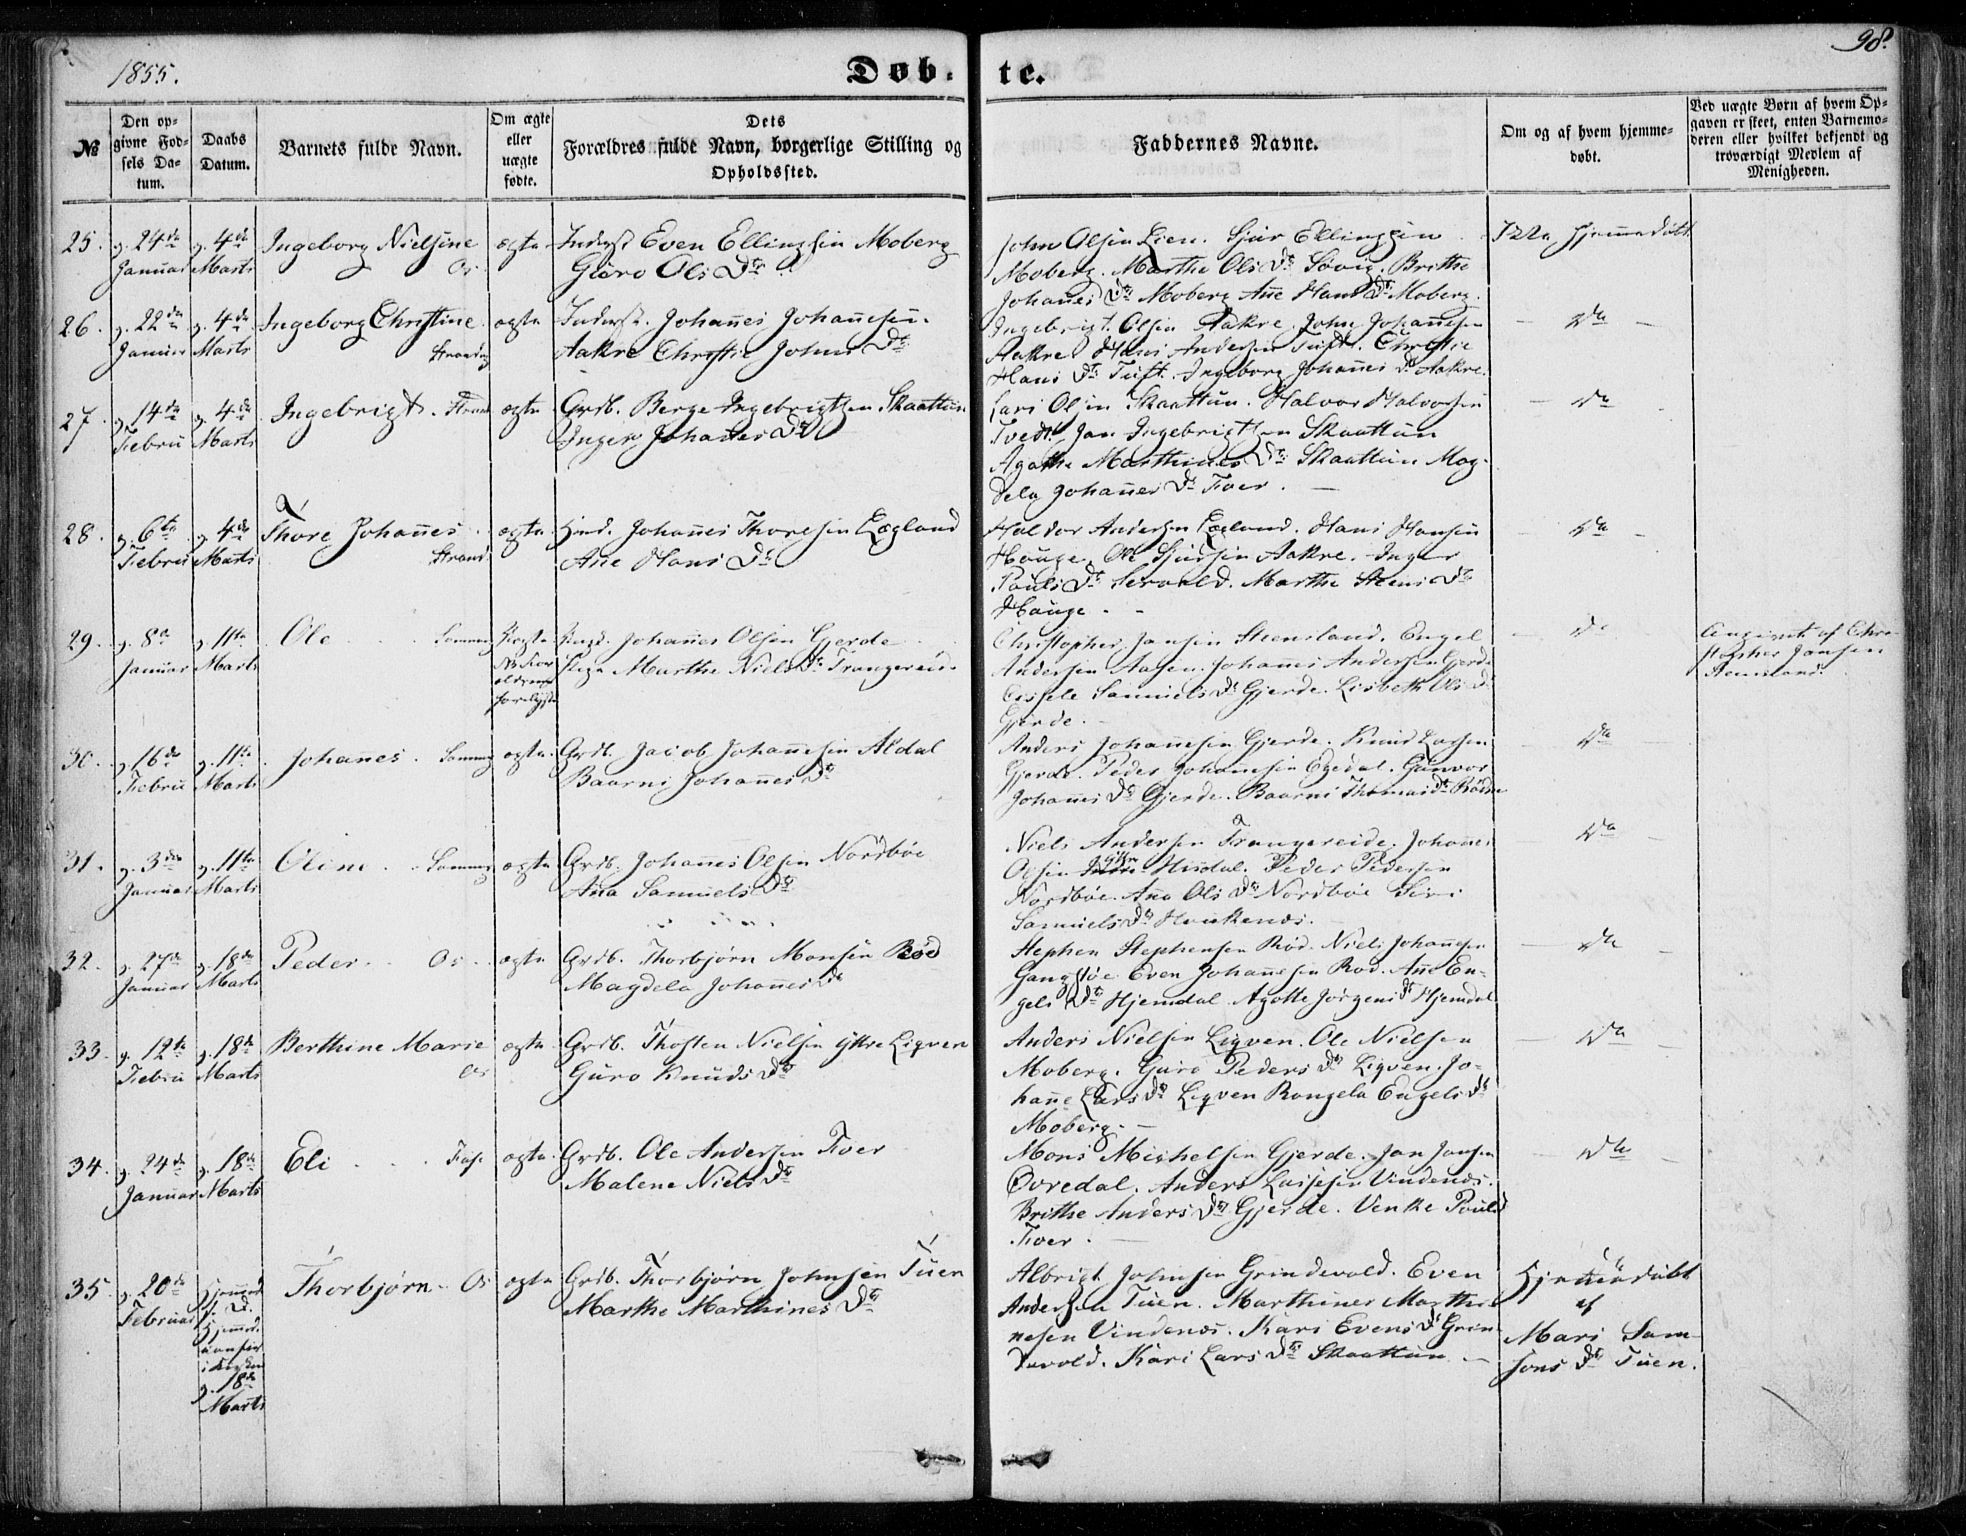 1855.
Døb-
te.
98.
№
Den op-
givne Fød-
sels Da-
tum.
Daabs
Datum.
Barnets fulde Navn.
Om ægte
eller
uægte
fødte.
Dets
Forældres fulde Navn, borgerlige Stilling og
Opholdssted.
Faddernes Navne.
Om og af hvem hjemme-
døbt.
Ved uægte Børn af hvem Op-
gaven er skeet, enten Barnemo-
deren eller hvilket bekjendt og
troværdigt Medlem af
Menigheden.
25. d. 24de
Januar
d. 4de
Marts
Ingeborg Nielsine
Os
ægte
Inderst Even Ellingsen Moberg
Guro Ols Dtr
John Olsen Lien. Sjur Ellingsen
Moberg. Marthe Ols Dtr Søvig. Brithe
Johannes Dtr Moberg Ane Hans Dtr Moberg.
Ikke hjemmedøbt
26. d. 22de
Januar
d. 4de
Marts
Ingeborg Christine
Strandv
ægte
Inderst. Johannes Johannesen
Aakre Christie Johns Dtr
Ingebrigt Olsen Aakre. John Johannesen
Aakre Hans Andersen Tuft. Christie
Hans Dtr Tuft. Ingeborg Johannes Dtr Aakre.
Do
27. d. 14de
Febru
d. 4de
Marts
Ingebrigt. Strand
ægte
Grdb. Berge Ingebrigtsen Skaattun
Inger Johannes Dtr
Lars Olsen Skaattun. Halvor Halvorsen
Tvedt. Jan Ingebrigtsen Skaattun
Agathe Marthines Dtr Skaattun Mag-
dela Johannes Dtr Tver.
Do
28. d. 6te
Februar
d. 4de
Marts
Thore Johannes
Strand.
ægte
Huusmd. Johannes Thoresen Egeland
Ane Hans Dtr
Haldor Andersen Egeland. Hans Hansen
Hauge. Ole Sjursen Aakre. Inger
Pouls Dtr Servold. Marthe Steens Dtr
Hauge.
Do
29. d. 8de
Januar
d. 11te
Marts
Ole
Samnang
Uægte
Johannes Olsen Gjerde
Pige Marthe Niels Dtr Trangereid.
Christopher Jansen Steensland. Engel
Andersen Aasen. Johannes Andersen Gjerde
Cissele Samuels Dtr Gjerde. Lisbeth Ols Dtr
Gjerde.
Do
Angivet af Chri-
stopher Jansen
Steensland.
30. d. 16de
Febru
d. 11te
Marts
Johannes. Samnang
ægte
Grdb. Jacob Johannesen Aldal
Baarni Johannes Dtr
Anders Johannesen Gjerde. Knud Larsen
Gjerde. Peder Johannesen Egedal. Gunvor
Johannes Dtr Gjerde. Baarni Thomas Dtr Rødne
Do
31. d. 3die
Januar
d. 11te
Marts
Oline. Samnang
ægte
Grdb. Johannes Olsen Nordbøe
Ana Samuels Dtr
Niels Andersen Trangereide. Johannes
Olsen Hisdal. Peder Pedersen
Nordbøe. Ana Ols Dtr Nordbøe Siri
Samuels Dtr Haukenæs.
Do
32. d. 27de
Januar
d. 18de
Marts
Peder. Os
ægte
Grdb. Thorbjørn Monsen Røed
Magdela Johannes Dtr
Stephen Stephensen Rød. Niels Johannesen
Gangstøe Even Johannesen Rød. Ane En-
gels Dtr Hjemdal. Agotte Jørgens Dtr Hjemdal
Do
33. d. 12te
Febru
d. 18de
Marts
Berthine Marie
Os
ægte
Grdb. Thosten Nielsen yttre Liqven
Guro Knuds Dtr
Anders Nielsen Liqven. Ole Nielsen
Moberg. Guro Peders Dtr Liqven. Jo-
hanne Lars Dtr Liqven Rangela Engels Dtr
Moberg.
Do
34. d. 24de
Januar
d. 18de
Marts
Eli
Fuse
ægte
Grdb. Ole Andersen Tver
Malene Niels Dtr
Mons Michelsen Gjerde. Jan Jansen
Øvredal. Anders Lassesen Vindenæs.
Brithe Anders Dtr Gjerde. Venke Pouls
Tver.
Do
35. d. 20de
Februar
Hjemmed.
Hjemmed.
i Kirken
d. 18de
Marts
Thorbjørn Os
ægte
Grdb. Thorbjørn Johnsen Tuen
Marthe Marthines Dtr
Albrigt Johnsen Grindevold. Even
Andersen Tuen. Marthines Marthi-
nesen Vindenæs. Kari Evens Dtr Grin-
devold. Kari Lars Dtr Skaattun
Hjemmedøbt
af
Mari Sam-
sons Dtr Tuen.